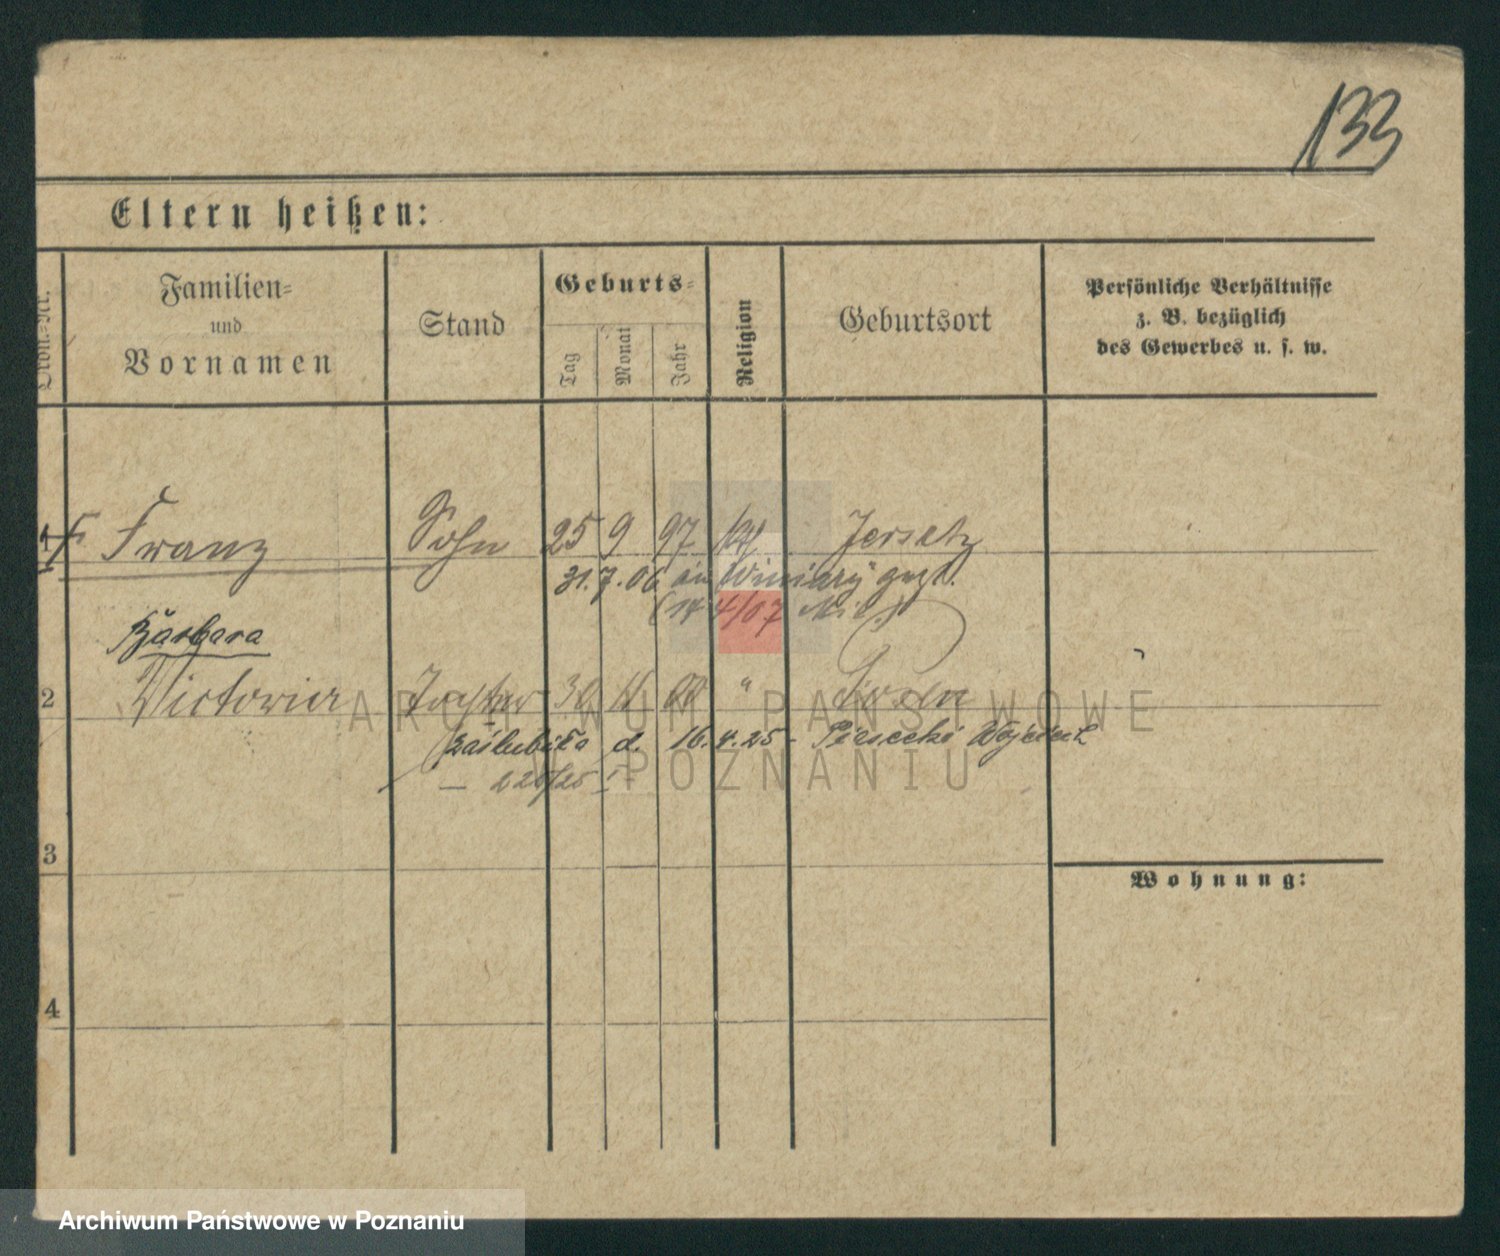 133
Eltern heißen:
Ordn.-Nr.
Familien-
und
Vornamen
Stand
Geburts-
Tag
Monat
Jahr
Religion
Geburtsort
Persönliche Verhältnisse
z. B. bezüglich
des Gewerbes u. s. w.
1 Franz Sohn 25 9 97 kth Jersitz
31.7.06 Winiary
4/07
Barbara
2 Victoria Tochter 30 11 00 " Posen
zaślubiła d. 16.4.25 - Piasecki Wojciech
3
Wohnung:
4
ARCHIWUM PAŃSTWOWE
W POZNANIU
Archiwum Państwowe w Poznaniu